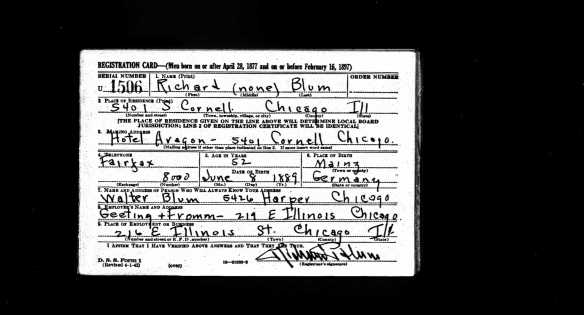 REGISTRATION CARD—(Men born on or after April 28, 1877 and on or before February 16, 1897)
SERIAL NUMBER 1. NAME (Print) ORDER NUMBER
U 1506 Richard (none) Blum
(First) (Middle) (Last)
2. PLACE OF RESIDENCE (Print)
5401 S Cornell Chicago Ill
(Number and street) (Town, township, village, or city) (County) (State)
[THE PLACE OF RESIDENCE GIVEN ON THE LINE ABOVE WILL DETERMINE LOCAL BOARD
JURISDICTION; LINE 2 OF REGISTRATION CERTIFICATE WILL BE IDENTICAL]
3. MAILING ADDRESS
Hotel Aragon - 5401 Cornell Chicago.
[Mailing address if other than place indicated on line 2. If same insert word same]
4. TELEPHONE 5. AGE IN YEARS 6. PLACE OF BIRTH
Fairfax 52 Mainz
DATE OF BIRTH (Town or county)
8000 June 8 1889 Germany
(Exchange) (Number) (Mo.) (Day) (Yr.) (State or country)
7. NAME AND ADDRESS OF PERSON WHO WILL ALWAYS KNOW YOUR ADDRESS
Walter Blum 5426 Harper Chicago
8. EMPLOYER'S NAME AND ADDRESS
Geeting + Fromm - 219 E Illinois Chicago.
9. PLACE OF EMPLOYMENT OR BUSINESS
216 E Illinois St. Chicago Ill
(Number and street or R. F. D. number) (Town) (County) (State)
I AFFIRM THAT I HAVE VERIFIED ABOVE ANSWERS AND THAT THEY ARE TRUE.
Richard Blum
D. S. S. Form 1
(Revised 4-1-42) (over) (Registrant's signature)